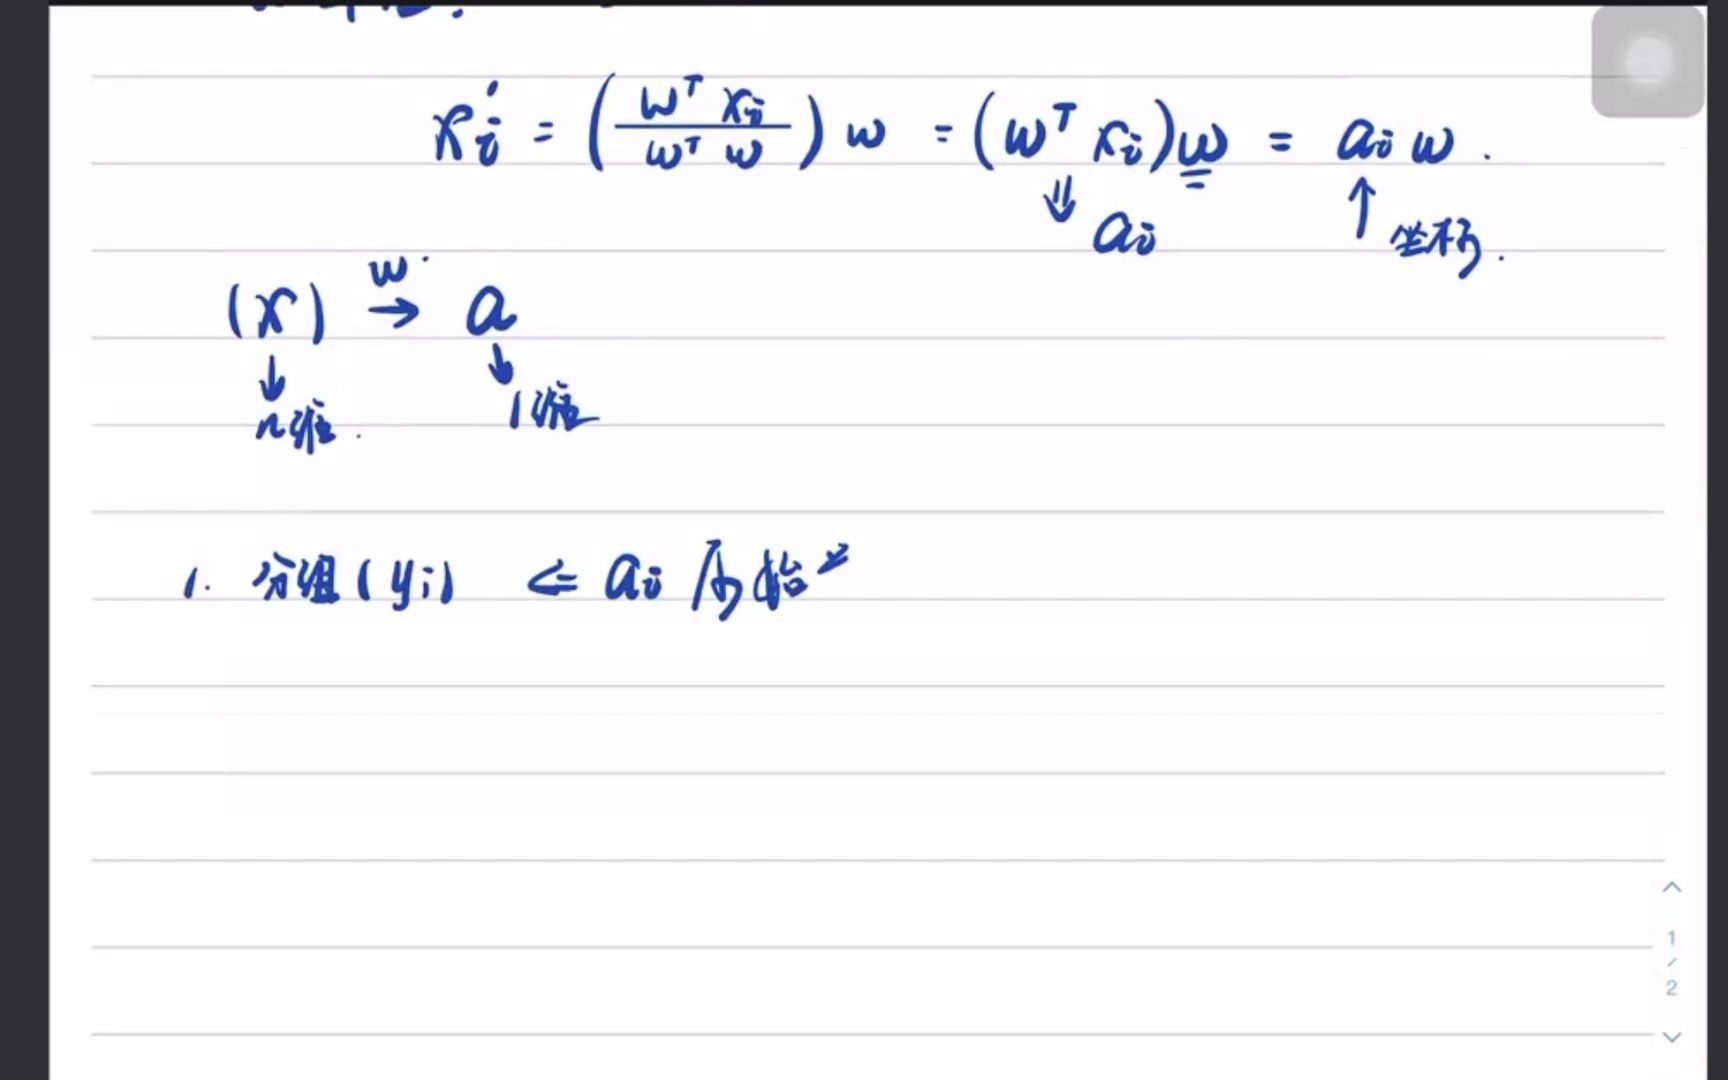 xi' = (wᵀ xi / wᵀ w) w = (wᵀ xi) w = ai w .
⇓ ai ↑ 坐标 .
(x) →w a
↓ ↓
n维 . 1维
1. 分组(yi) ⇐ ai
1
/
2